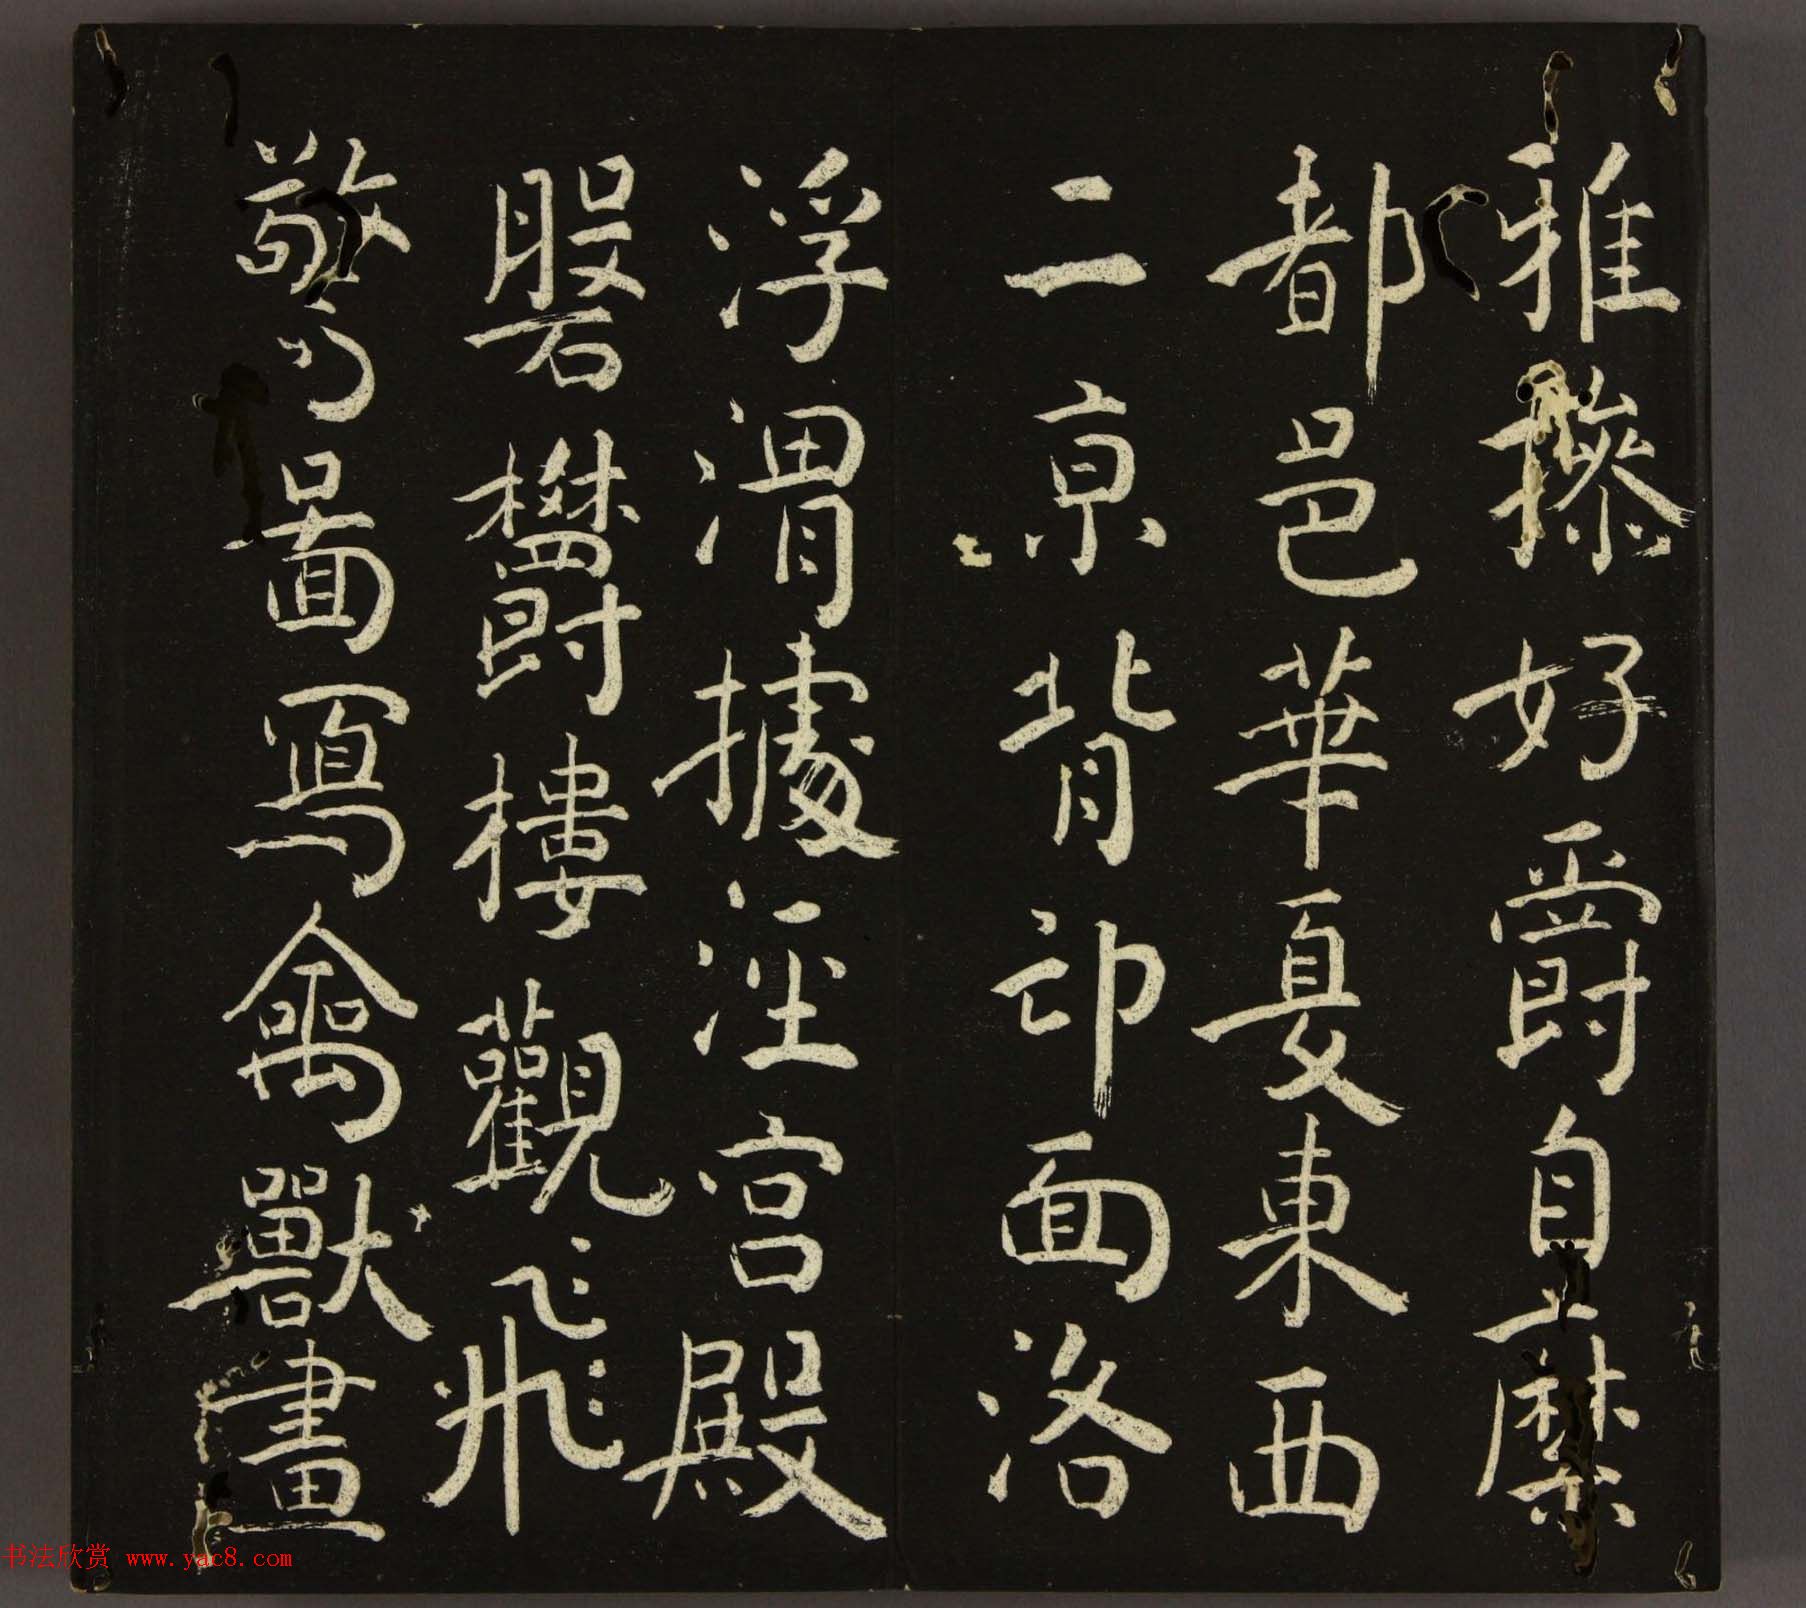 雅操好爵自縻
都邑華夏東西
二京背邙面洛
浮渭據涇宫殿
磐欝樓觀飛
驚啚寫禽獸畫
书法欣赏 www.yac8.com